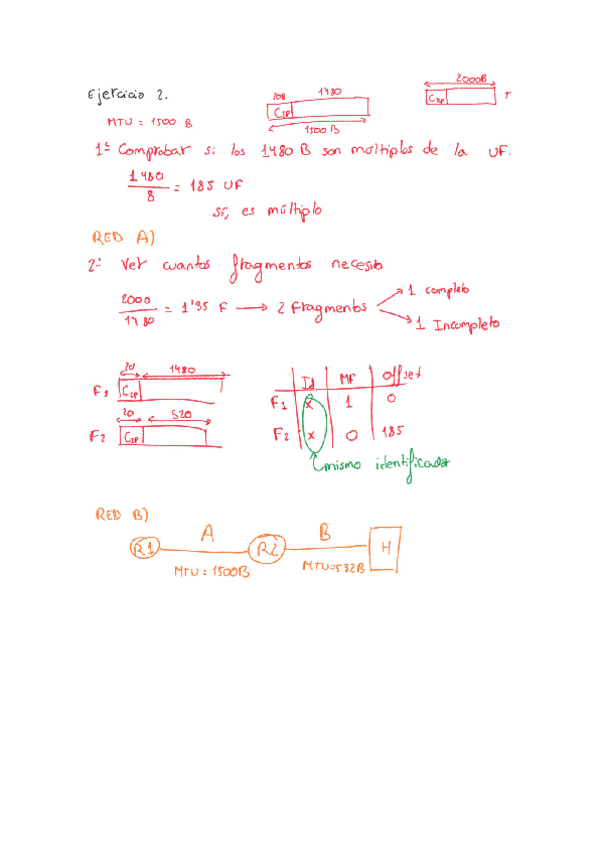 Ejercicio 2.
20B 1480
CIP
1500 B
2000B
CIP
MTU = 1500 B
1º Comprobar si los 1480 B son múltiplos de la UF.
1480
8
= 185 UF
Sí, es múltiplo
RED A)
2º Ver cuantos fragmentos necesito
2000
1480
= 1'35 F → 2 Fragmentos
1 completo
1 Incompleto
20 1480
F1 CIP
20 520
F2 CIP
Id MF offset
F1 x 1 0
F2 x 0 185
mismo identificador
RED B)
A B
R1 R2 H
MTU = 1500B MTU=532B